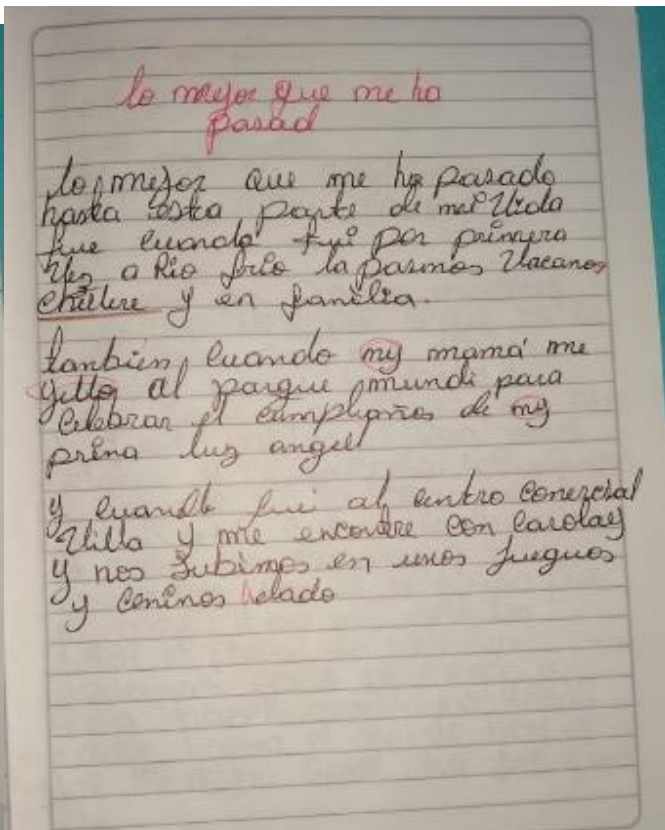 lo mejor que me ha
pasad
lo mejor que me ha pasado
hasta esta parte de mi vida
fue cuando fui por primera
vez a Rio frio la pasmos vacano,
chevere y en familia.
tanbien, cuando my mamá me
yebo al parque mundi para
celebrar el cumpliaños de my
prima luz angel
y cuando fui al centro comercial
Villa y me encontre con Carolay
y nos subimos en unos jueguos
y cominos helado